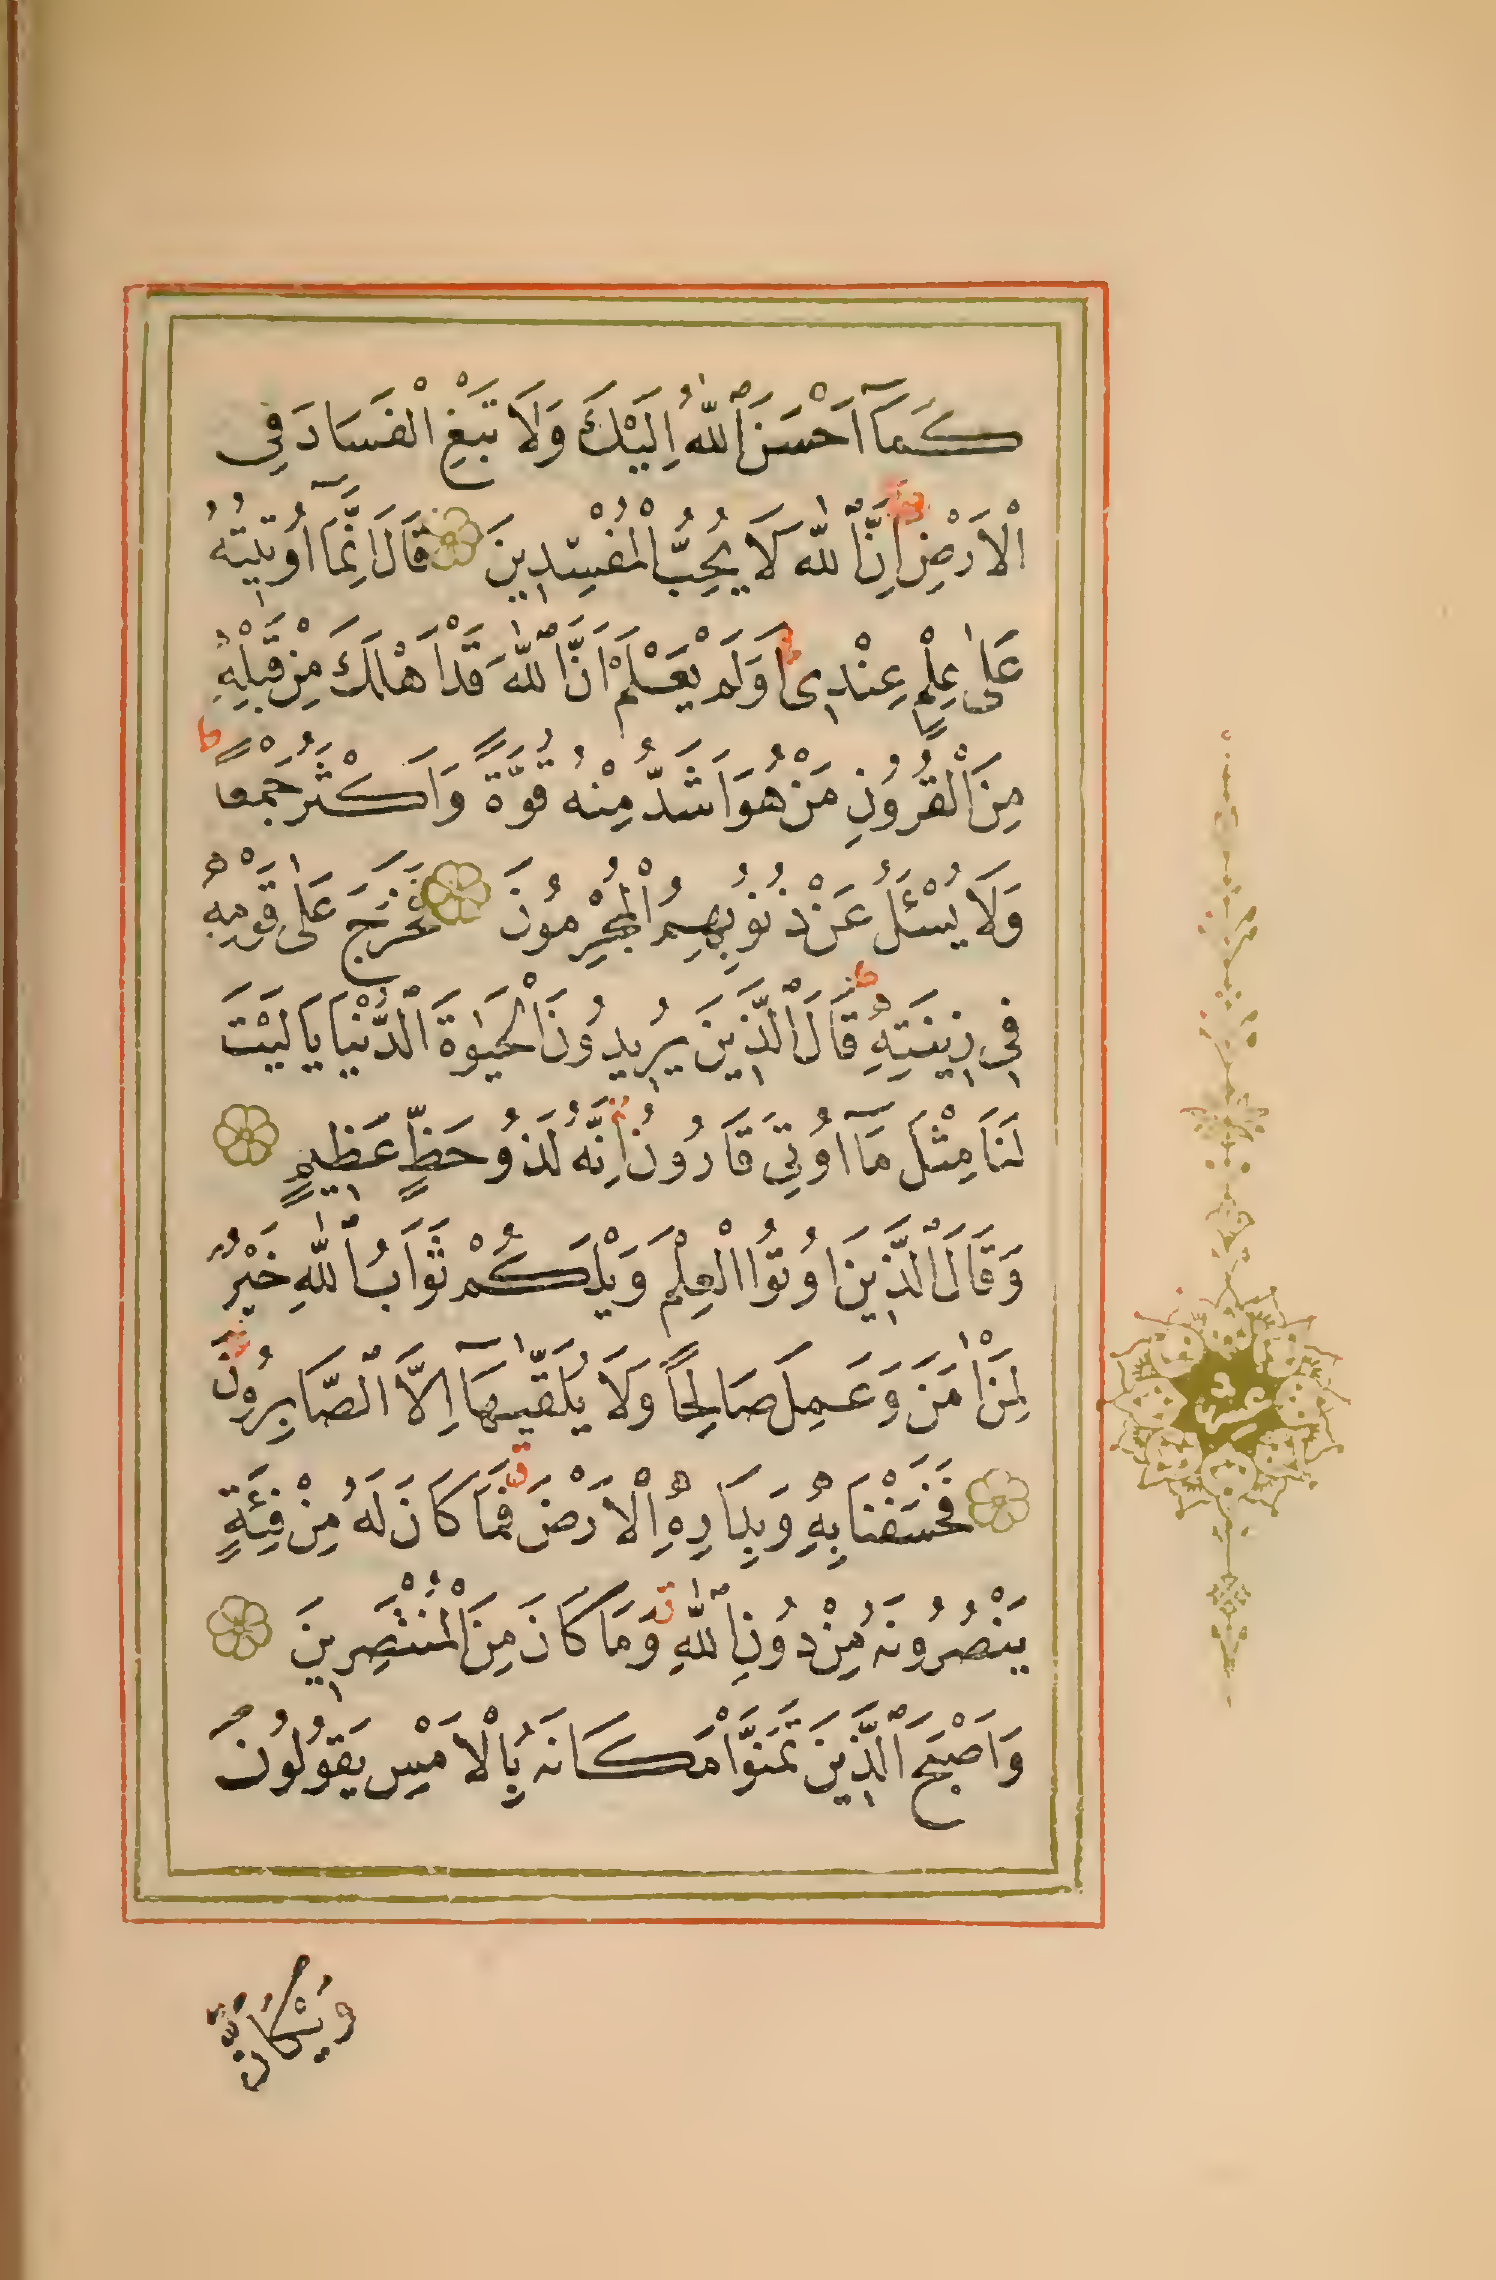 كَمَآ اَحْسَنَ ٱللّٰهُ اِلَيْكَ وَلَا تَبْغِ الْفَسَادَ فِى
الْاَرْضِ اِنَّ ٱللّٰهَ لَا يُحِبُّ الْمُفْسِدٖينَ قَالَ اِنَّمَآ اُو۫تٖيتُهُ
عَلٰى عِلْمٍ عِنْدٖى اَوَلَمْ يَعْلَمْ اَنَّ ٱللّٰهَ قَدْ اَهْلَكَ مِنْ قَبْلِهٖ
مِنَ الْقُرُونِ مَنْ هُوَ اَشَدُّ مِنْهُ قُوَّةً وَاَكْثَرُ جَمْعًا
وَلَا يُسْئَلُ عَنْ ذُنُوبِهِمُ الْمُجْرِمُونَ فَخَرَجَ عَلٰى قَوْمِهٖ
فٖى زٖينَتِهٖ قَالَ ٱلَّذٖينَ يُرٖيدُونَ الْحَيٰوةَ ٱلدُّنْيَا يَا لَيْتَ
لَنَا مِثْلَ مَآ اُو۫تِىَ قَارُونُ اِنَّهُ لَذُو حَظٍّ عَظٖيمٍ
وَقَالَ ٱلَّذٖينَ اُو۫تُوا الْعِلْمَ وَيْلَكُمْ ثَوَابُ ٱللّٰهِ خَيْرٌ
لِمَنْ اٰمَنَ وَعَمِلَ صَالِحًا وَلَا يُلَقّٰيهَآ اِلَّا ٱلصَّابِرُونَ
فَخَسَفْنَا بِهٖ وَبِدَارِهِ الْاَرْضَ فَمَا كَانَ لَهُ مِنْ فِئَةٍ
يَنْصُرُونَهُ مِنْ دُونِ ٱللّٰهِ وَمَا كَانَ مِنَ الْمُنْتَصِرٖينَ
وَاَصْبَحَ ٱلَّذٖينَ تَمَنَّوْا مَكَانَهُ بِالْاَمْسِ يَقُولُونَ
وَيْكَاَنَّ